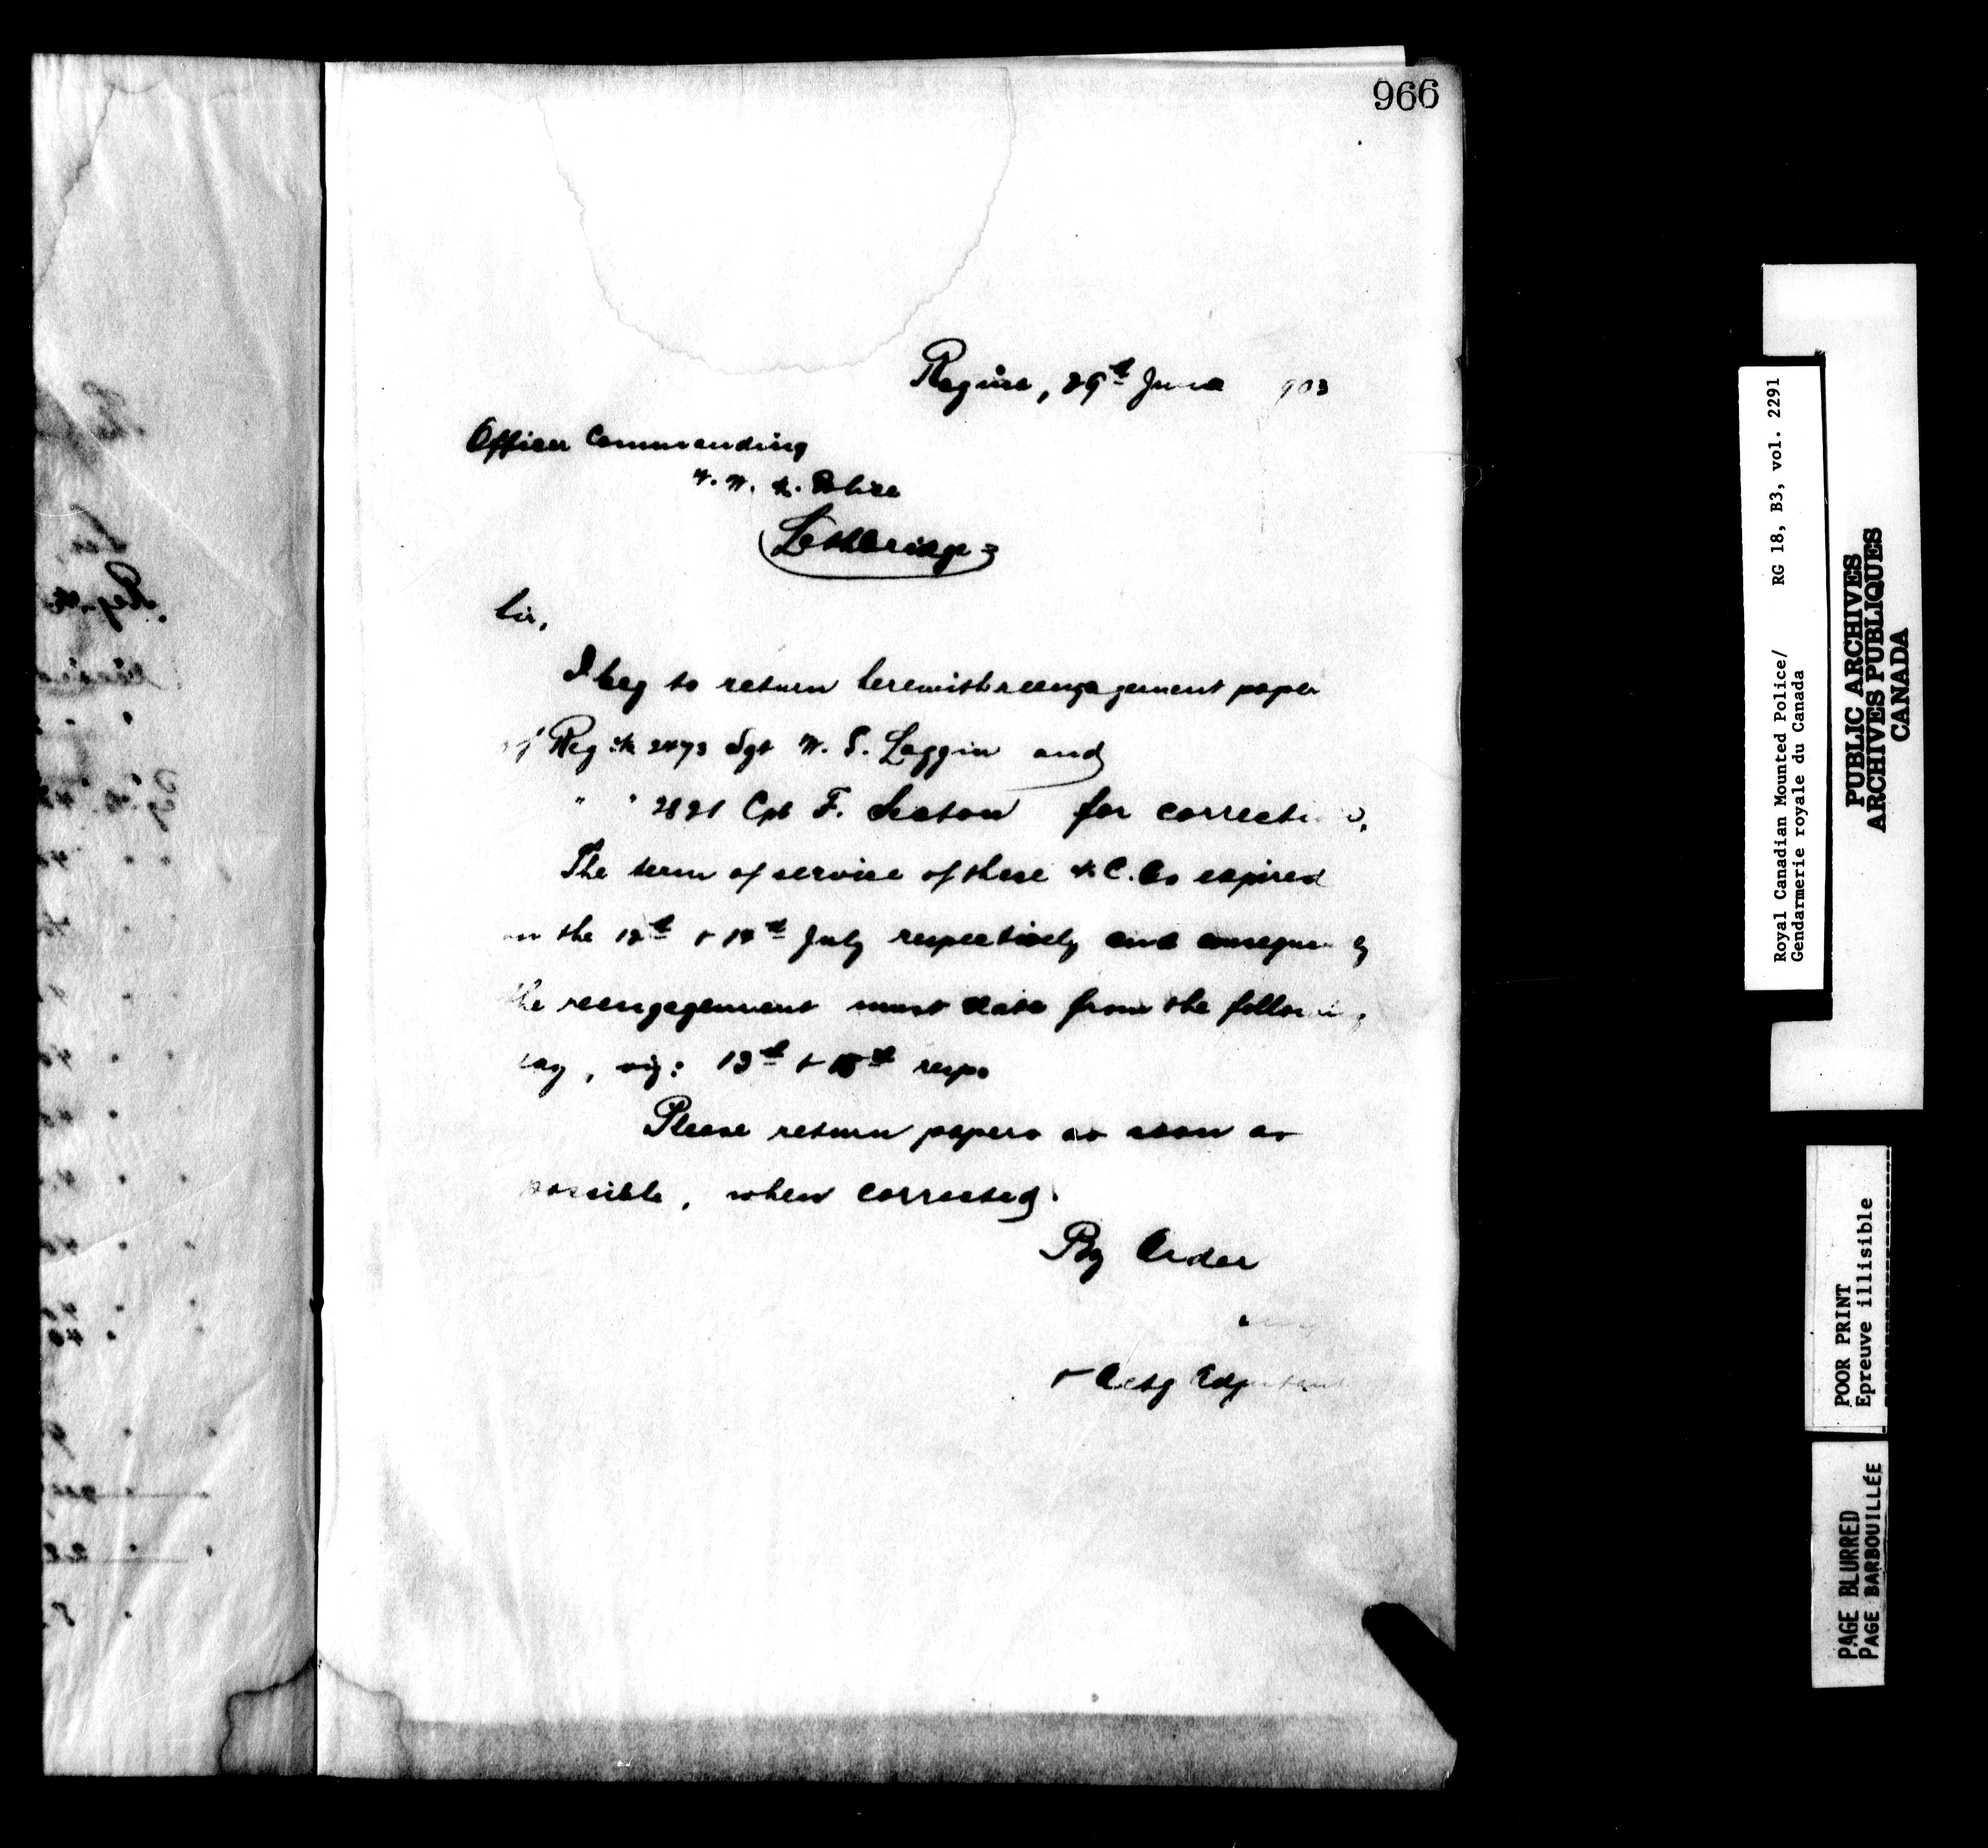 966
Regina, 29th June 903
Officer Commanding
N. W. M. Police
Lethbridge
Sir,
I beg to return herewith reengagement paper
of Reg: No 2473 Sgt W. S. Loggin and
" " 2821 Cpl F. Seaton for correcti n.
The term of service of these N.C.Os expired
on the 12th & 14th July respectively and
the reengagement must date from the following
day, viz: 13th & 15th resp.
Please return papers as soon as
possible, when corrected.
By Order
& Actg Adjutant
Royal Canadian Mounted Police/ RG 18, B3, vol. 2291
Gendarmerie royale du Canada
PUBLIC ARCHIVES
ARCHIVES PUBLIQUES
CANADA
POOR PRINT
Epreuve illisible
PAGE BLURRED
PAGE BARBOUILLÉE